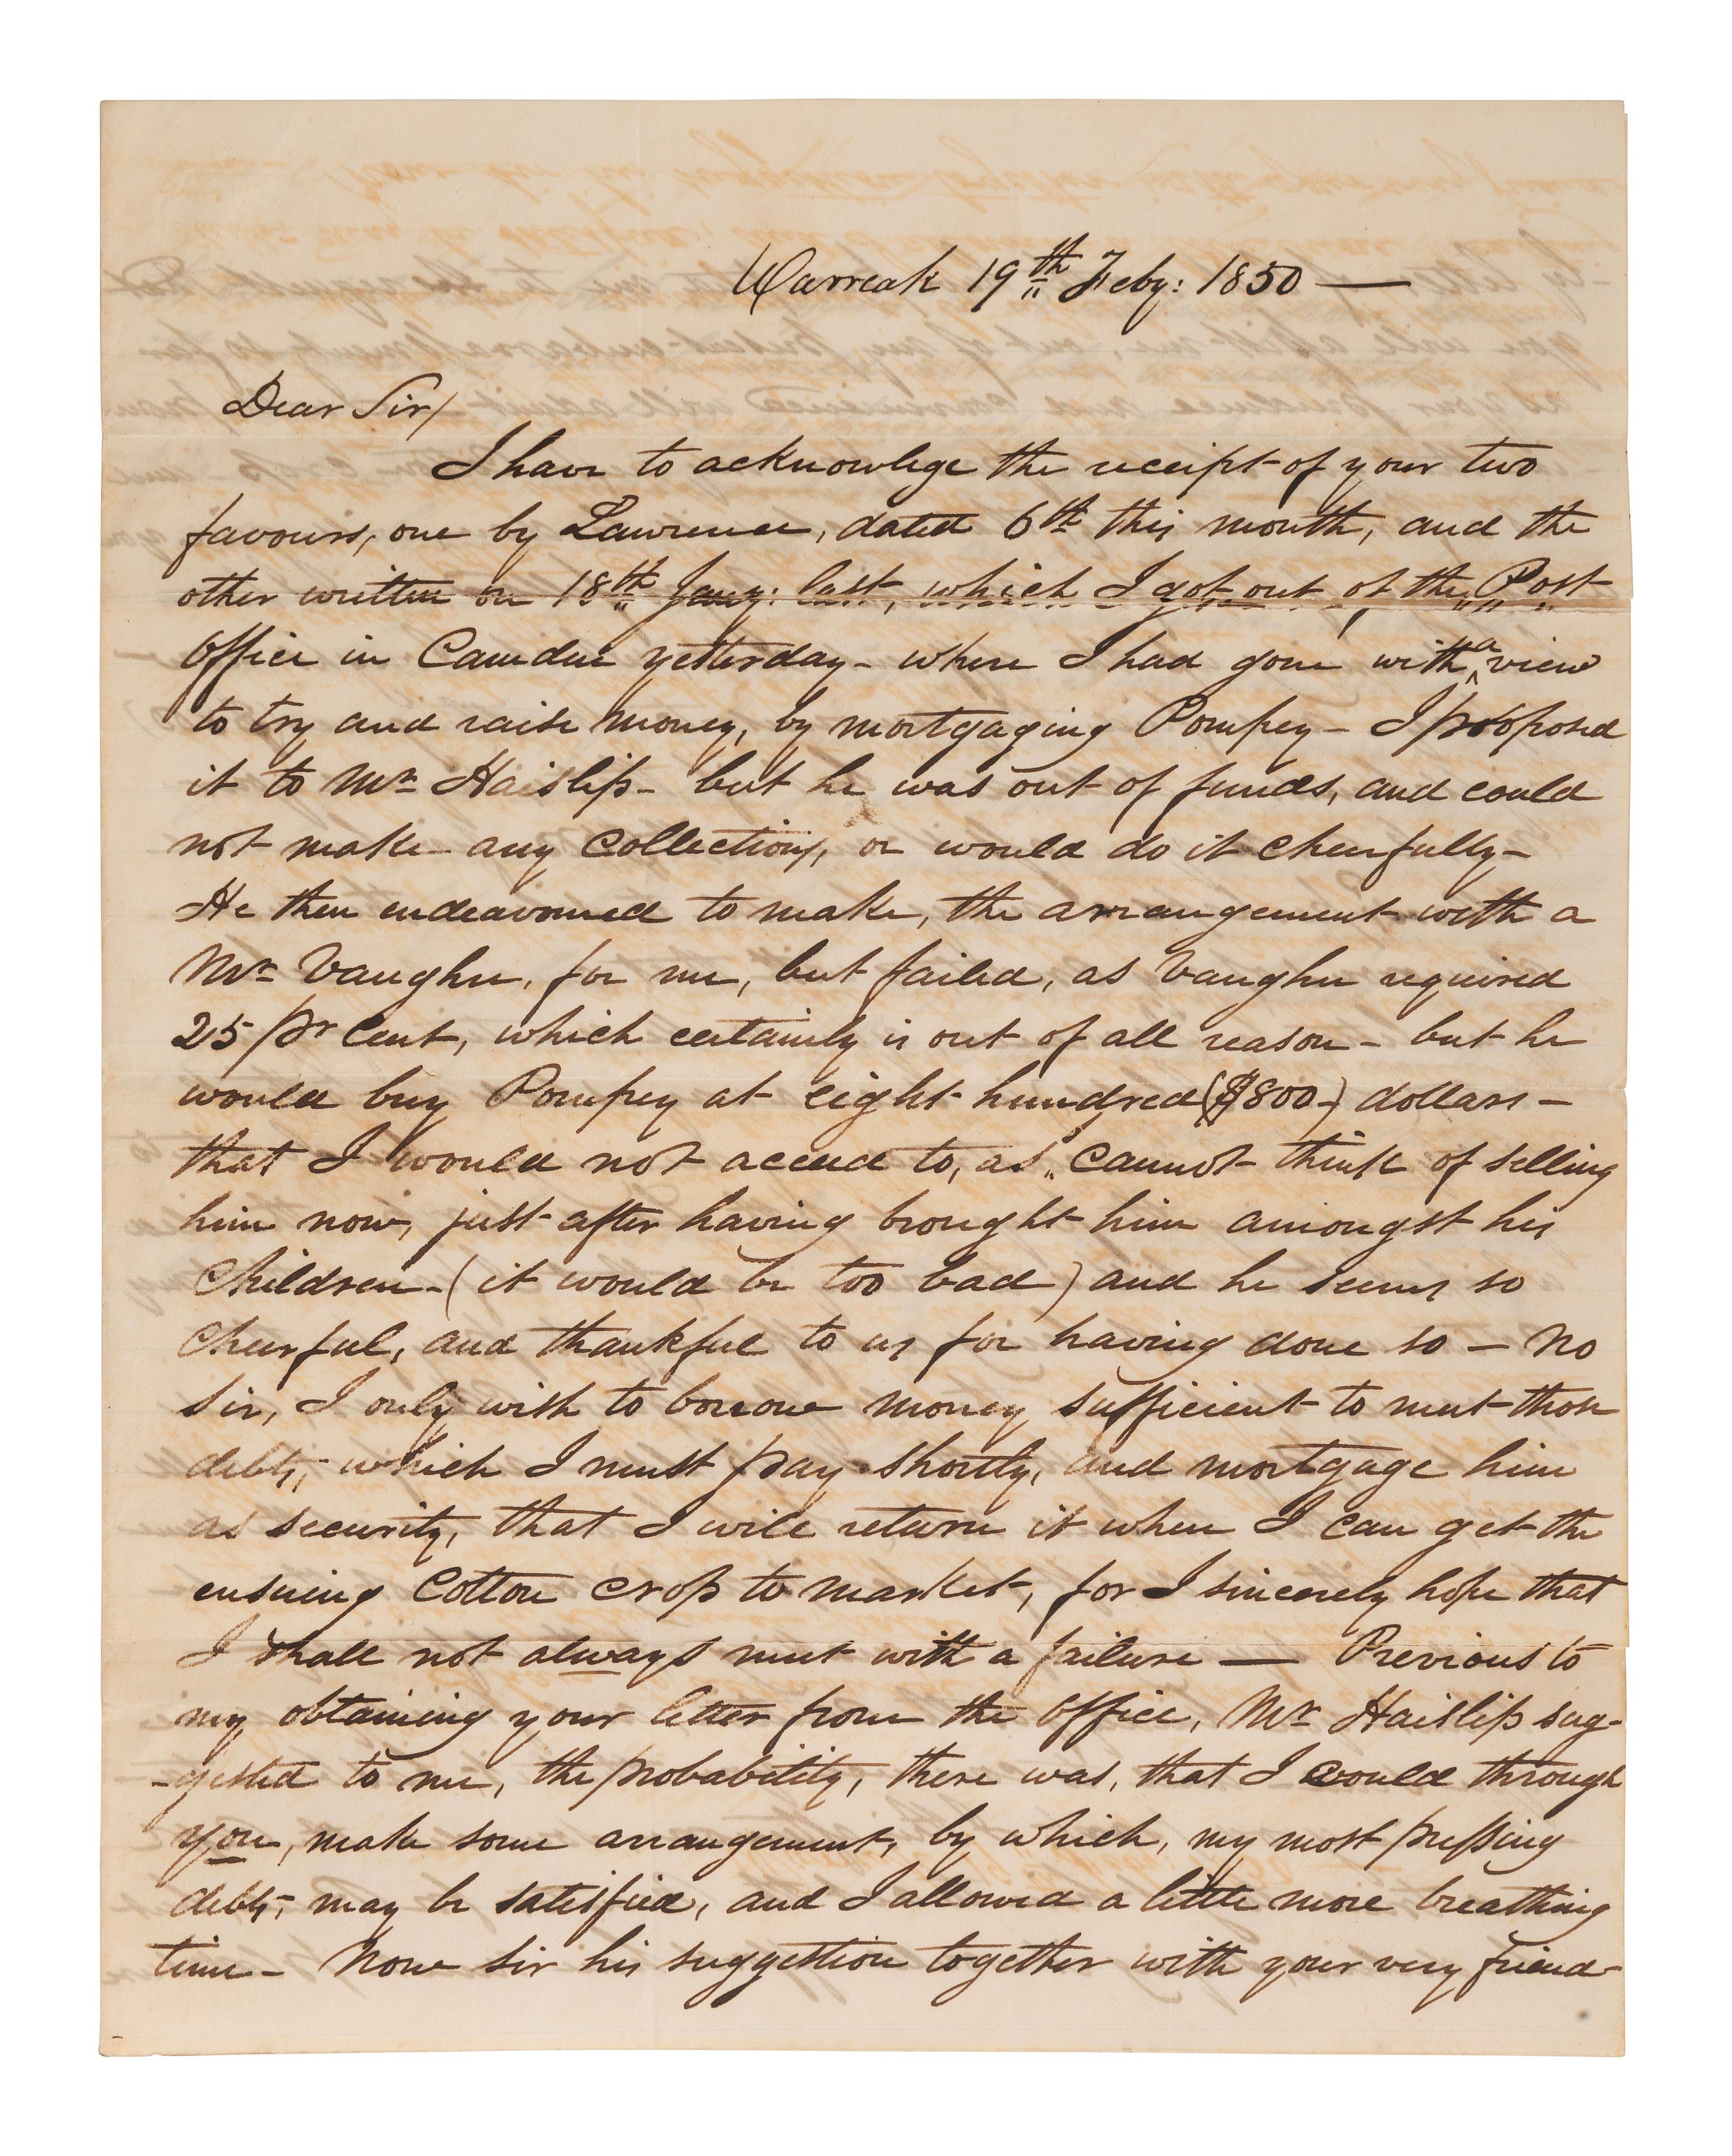 Warreak 19th Feby: 1850 —
Dear Sir/
I have to acknowlege the receipt of your two
favours, one by Lawrence, dated 6th this month, and the
other written on 18th Jany: last, which I got out of the Post
Office in Camden yesterday - where I had gone with a view
to try and raise money, by mortgaging Pompey - I proposed
it to Mr Haislip - but he was out of funds, and could
not make any collections, or would do it cheerfully -
He then endeavoured to make, the arrangement with a
Mr Vaughn, for me, but failed, as Vaughn required
25 pr Cent, which certainly is out of all reason - but he
would buy Pompey at eight hundred ($800-) dollars -
that I would not acceed to, as cannot think of selling
him now, just after having brought him amongst his
Children - (it would be too bad) and he seems so
Cheerful, and thankful to us for having done so - No
Sir, I only wish to borrow money sufficient to meet those
debts, which I must pay shortly, and mortgage him
as security, that I will return it when I can get the
ensuing Cotton crop to market, for I sincerely hope that
I shall not always meet with a failure — Previous to
my obtaining your letter from the office, Mr Haislip sug-
-gested to me, the probability, there was, that I could through
you, make some arrangement, by which, my most pressing
debts, may be satisfied, and I allowed a little more breathing
time - Now sir his suggestion together with your very friend-